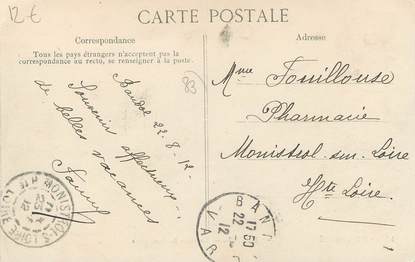 12 €
CARTE POSTALE
Correspondance
Adresse
Tous les pays étrangers n'acceptent pas la
correspondance au recto, se renseigner à la poste.
83
Bandol 22-8-12-
Souvenir affectueux
de belles vacances
Fanny
Mme Fouillouse
Pharmacie
Monistrol-sur-Loire
Hte Loire
MONISTROL-S-LOIRE
BAND
17 50
22
12
VAR